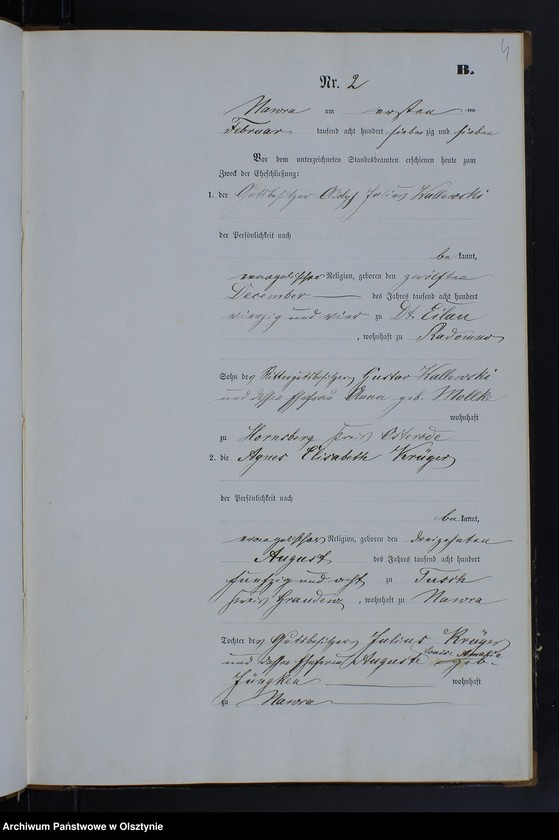 4
B.
Nr. 2
Nawra am ersten ten
Februar tausend acht hundert siebenzig und sieben
Vor dem unterzeichneten Standesbeamten erschienen heute zum
Zweck der Eheschließung:
1. der Gutsbesitzer Adolf Julius Kallewski
der Persönlichkeit nach
bekannt,
evangelischer Religion, geboren den zwölften
December des Jahres tausend acht hundert
vierzig und vier zu Dt. Eilau
, wohnhaft zu Radomno
Sohn des Rittergutsbesitzers Gustav Kallewski
und dessen Ehefrau Anna geb. Moltke
wohnhaft
zu Hornsberg Kreis Osterode
2. die Agnes Elisabeth Krüger
der Persönlichkeit nach
bekannt,
evangelischer Religion, geboren den dreizehnten
August des Jahres tausend acht hundert
fünfzig und acht zu Tusch
Kreis Graudenz, wohnhaft zu Nawra
Tochter des Gutsbesitzers Julius Krüger
und dessen Ehefrau Auguste Louise Amalie geb.
Jüngken wohnhaft
zu Nawra
Archiwum Państwowe w Olsztynie